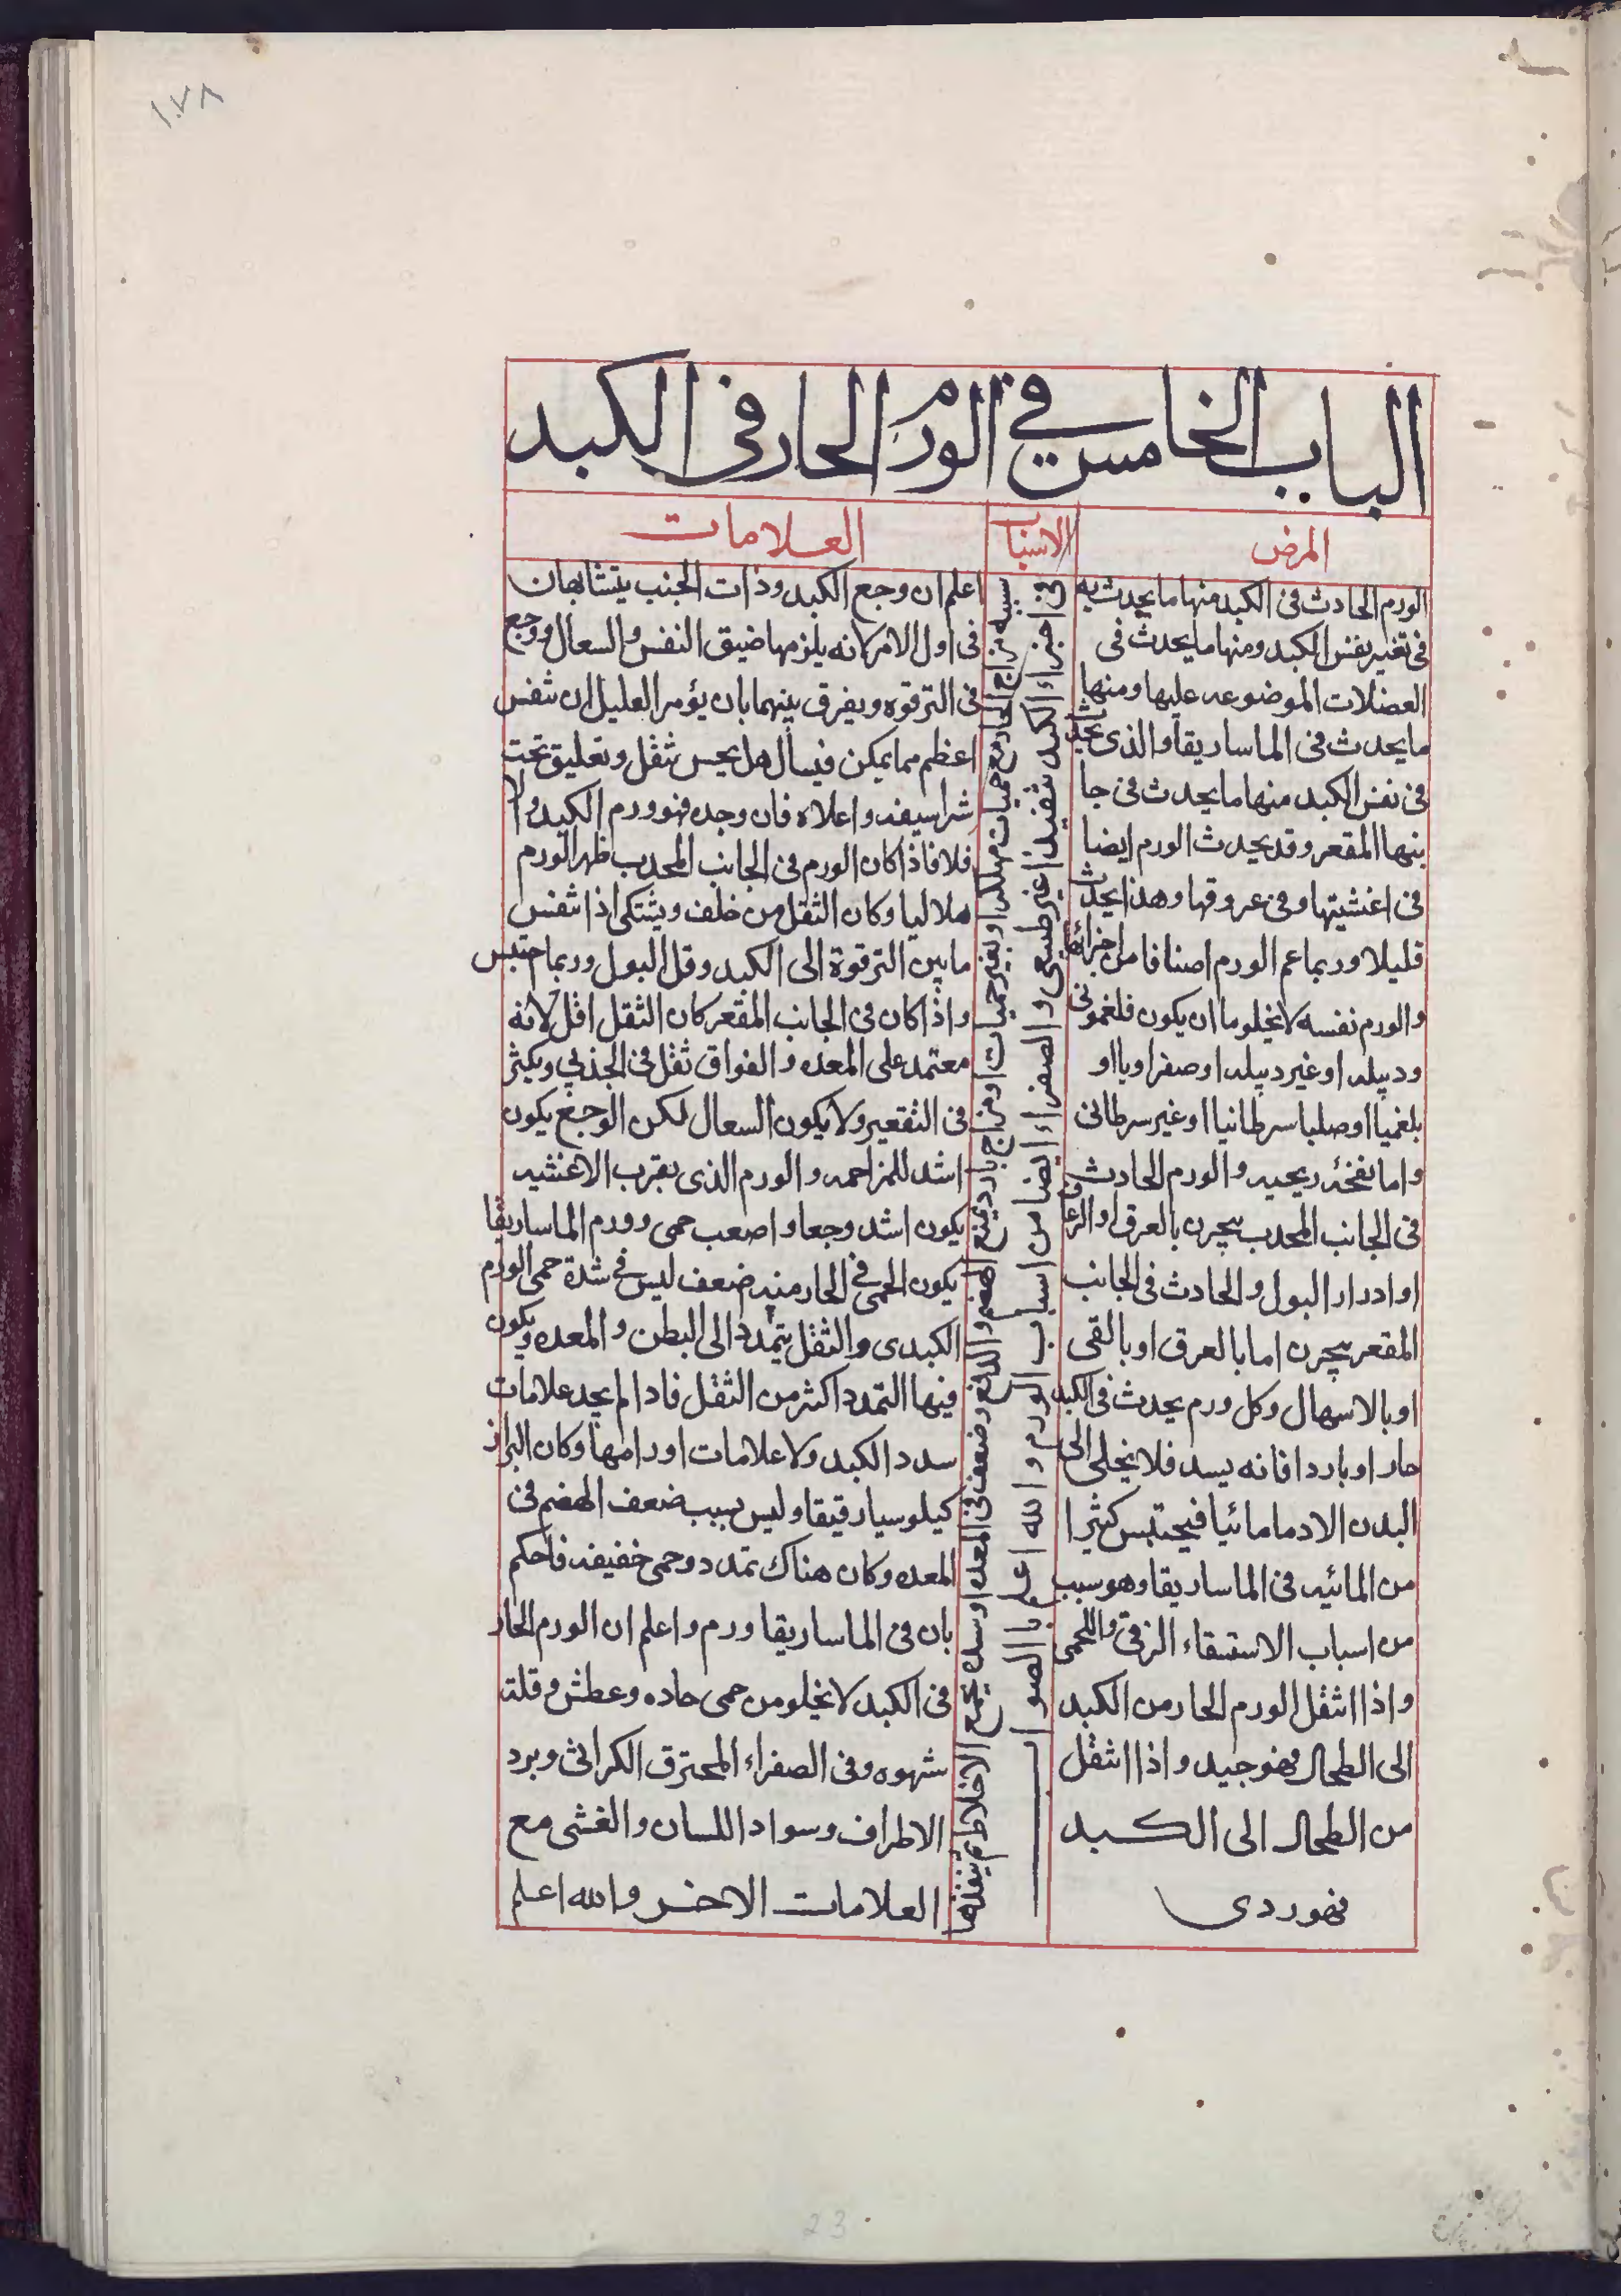 ١٠٧٨
الباب الخامس في الورم الحار فى الكبد
المرض
الورم الحادث فى الكبد منها ما يحدث به
فى تغير نفس الكبد ومنها ما يحدث فى
العضلات الموضوعه عليها ومنها
ما يحدث فى الماساريقا والذى يحدث
فى نفس الكبد منها ما يحدث فى جا
نبها المقعر وقد يحدث الورم ايضا
فى اغشيتها وفى عروقها وهذا يحدث
قليلا وربما عم الورم اصنافا من اجزائها
والورم نفسه لا يخلو ما ان يكون فلغمونى
ودبيله او غير دبيله او صفراويا او
بلغميا او صلبا سرطانيا او غير سرطانى
واما نفخه ريحيه والورم الحادث
فى الجانب المحدب يبحرن بالعرق او الرعاف
او ادرار البول والحادث فى الجانب
المقعر يبحرن اما بالعرق او بالقى
او بالاسهال وكل ورم يحدث فى الكبد
حار او باردا فانه يسد فلا يخلى الى
البدن الا دما مائيا فيحتبس كثيرا
من المائيه فى الماساريقا وهو سبب
من اسباب الاستسقاء الزقى واللحمى
واذا انتقل الورم الحار من الكبد
الى الطحال فهو جيد واذا انتقل
من الطحال الى الكبد
فهو ردى
الاسباب
سببه مزاج الحار مع حميات مهلكه او بغير حميات او مزاج بارد يمنع الهضم والدفع وضعف فى المعده او سده تجمع الاخلاط ثم ينفذها
فى اجزاء الكبد تنفيذا غير طبيعى والصفراء ايضا من اسباب الورم والله اعلم بالصواب
العلامات
اعلم ان وجع الكبد وذات الجنب يتشابهان
فى اول الامر لانه يلزمها ضيق النفس والسعال ووجع
فى الترقوه ويفرق بينهما بان يؤمر العليل ان تنفس
اعظم مما يمكن فيسأل هل يحس بثقل وتعليق تحت
شراسيفه واعلاه فان وجده فهو ورم الكبد والا
فلا فاذا كان الورم فى الجانب المحدب ظهر الورم
هلاليا وكان الثقل من خلف ويشتكى اذا تنفس
ما بين الترقوة الى الكبد وقل البول وربما احتبس
واذا كان فى الجانب المقعر كان الثقل اقل لانه
معتمد على المعده والفواق ثقل فى الجذبى ويكثر
فى التقعير ولا يكون السعال لكن الوجع يكون
اشد للمزاحمه والورم الذى بقرب الاغشيه
يكون اشد وجعا واصعب حمى وورم الماساريقا
يكون الحمى فى الحار منه ضعف ليس فى شدة حمى الورم
الكبدى والثقل يتمدد الى البطن والمعده ويكون
فيها التمدد اكثر من الثقل فاذا لم يجد علامات
سدد الكبد ولا علامات اورامها وكان البراز
كيلوسيا رقيقا وليس بسبب ضعف الهضم فى
المعده وكان هناك تمدد وحمى خفيفه فاحكم
بان فى الماساريقا ورم واعلم ان الورم الحار
فى الكبد لا يخلو من حمى حاده وعطش وقلة
شهوه وفى الصفراء المحترق الكراثى وبرد
الاطراف وسواد اللسان والغشى مع
العلامات الاخر والله اعلم
23